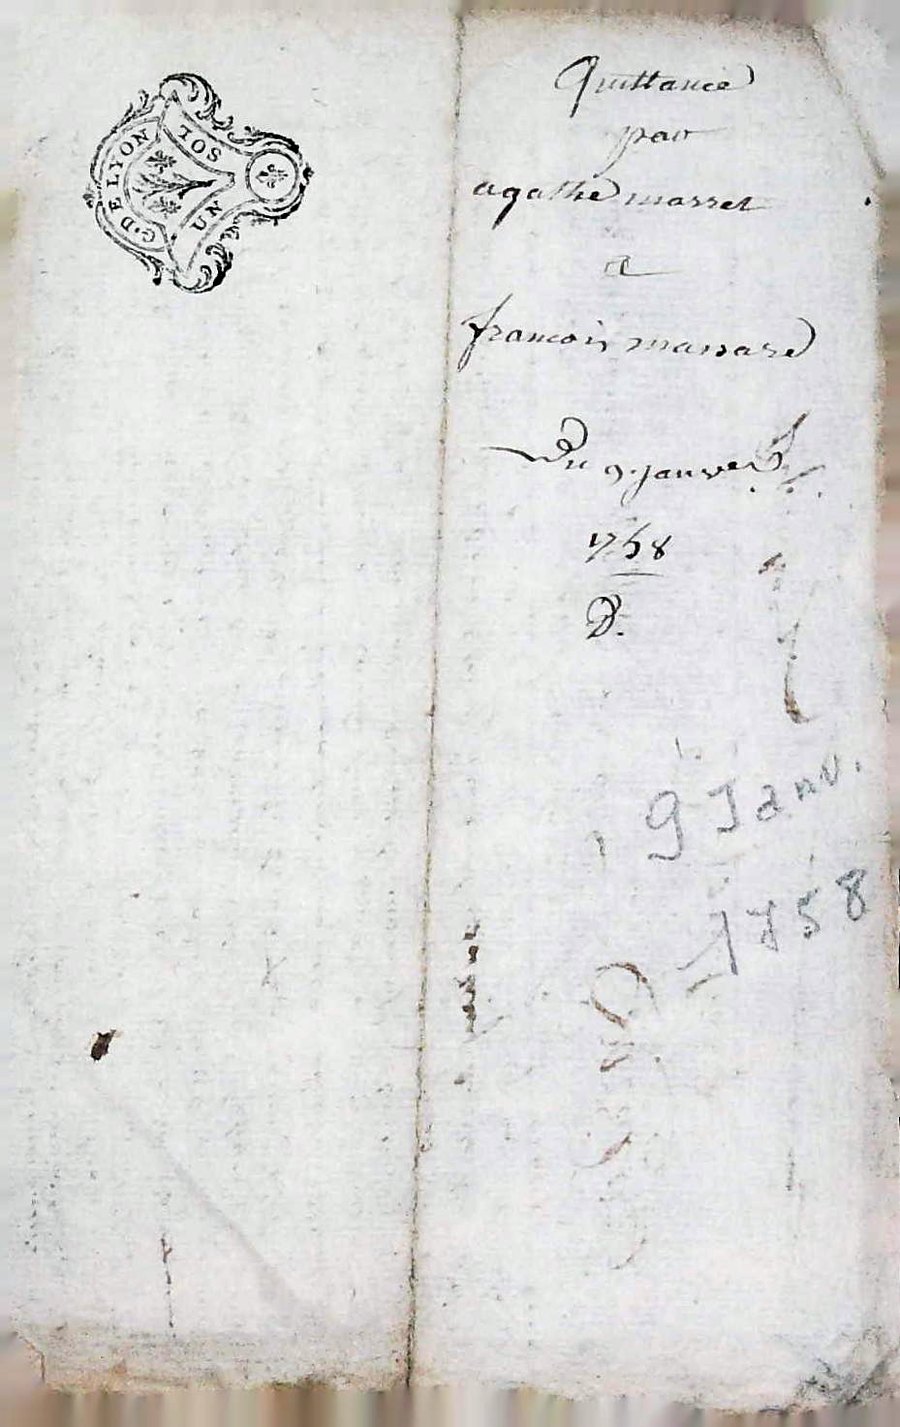 G. DE LYON
UN SOL
Quittance
par
agathe marret
a
francois massare
Du 9. janvier
1758
D.
9 Janv.
1758